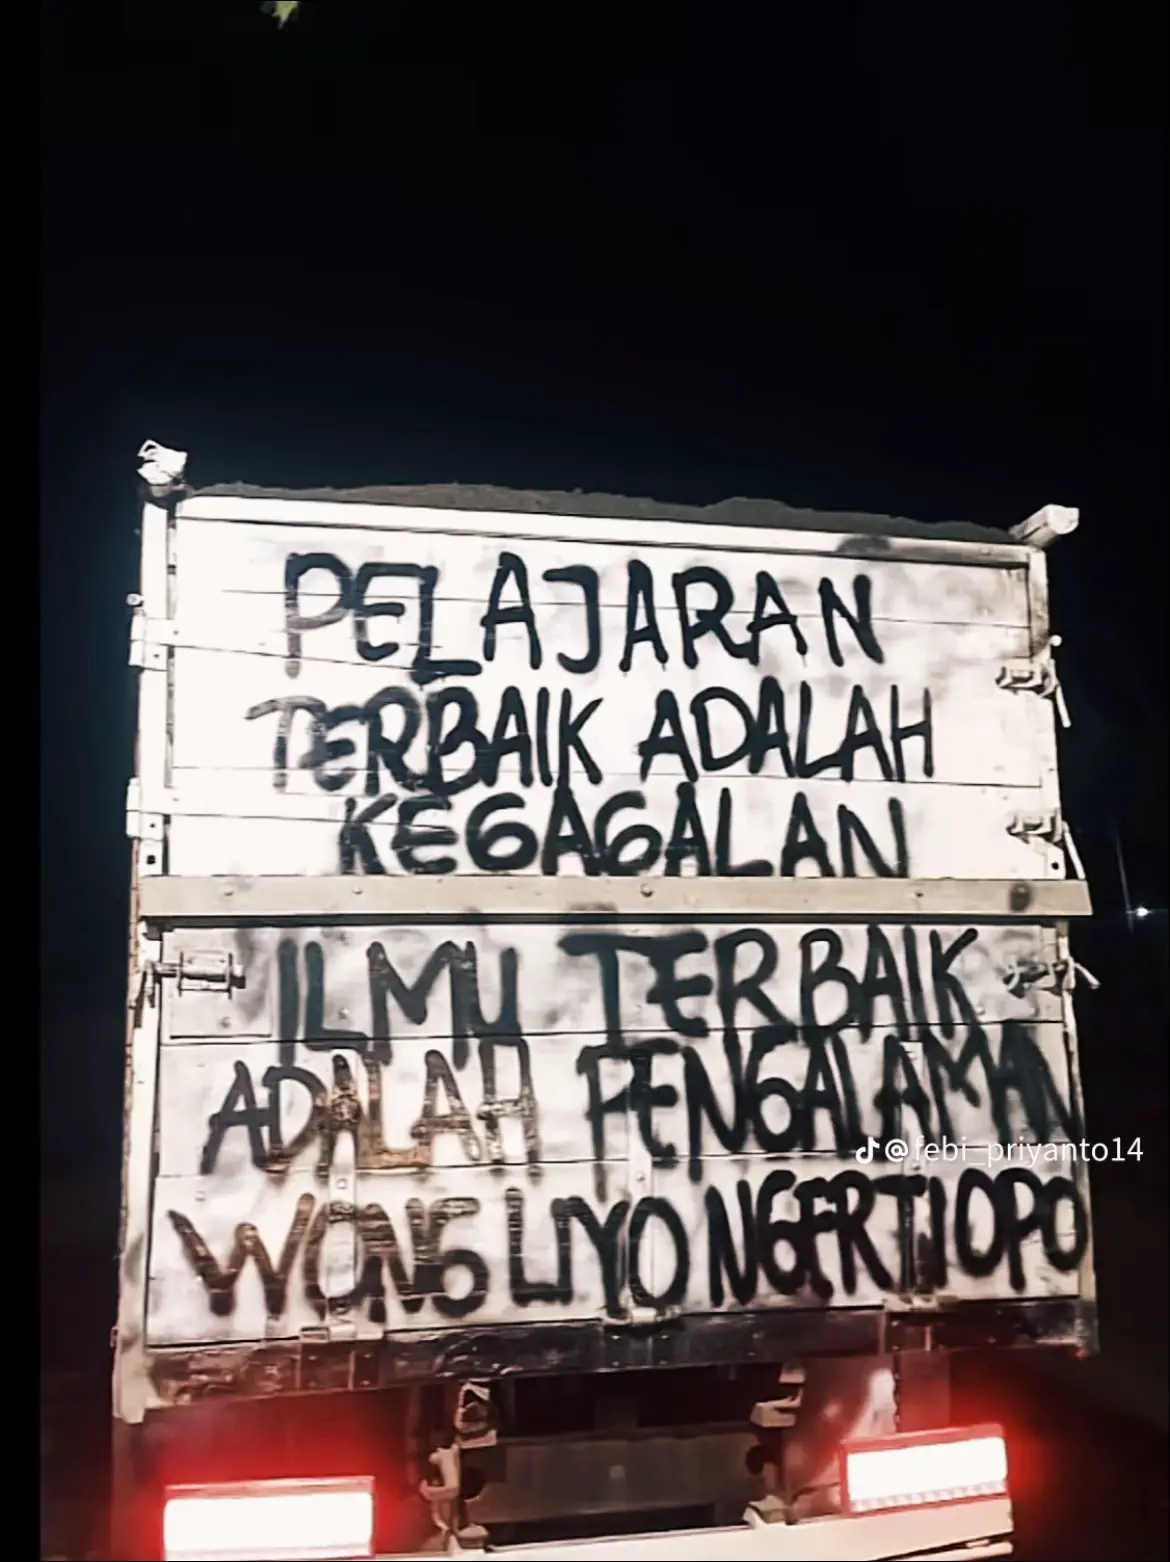 PELAJARAN
TERBAIK ADALAH
KEGAGALAN
ILMU TERBAIK
ADALAH PENGALAMAN
@febi_priyanto14
WONG LIYO NGERTI OPO